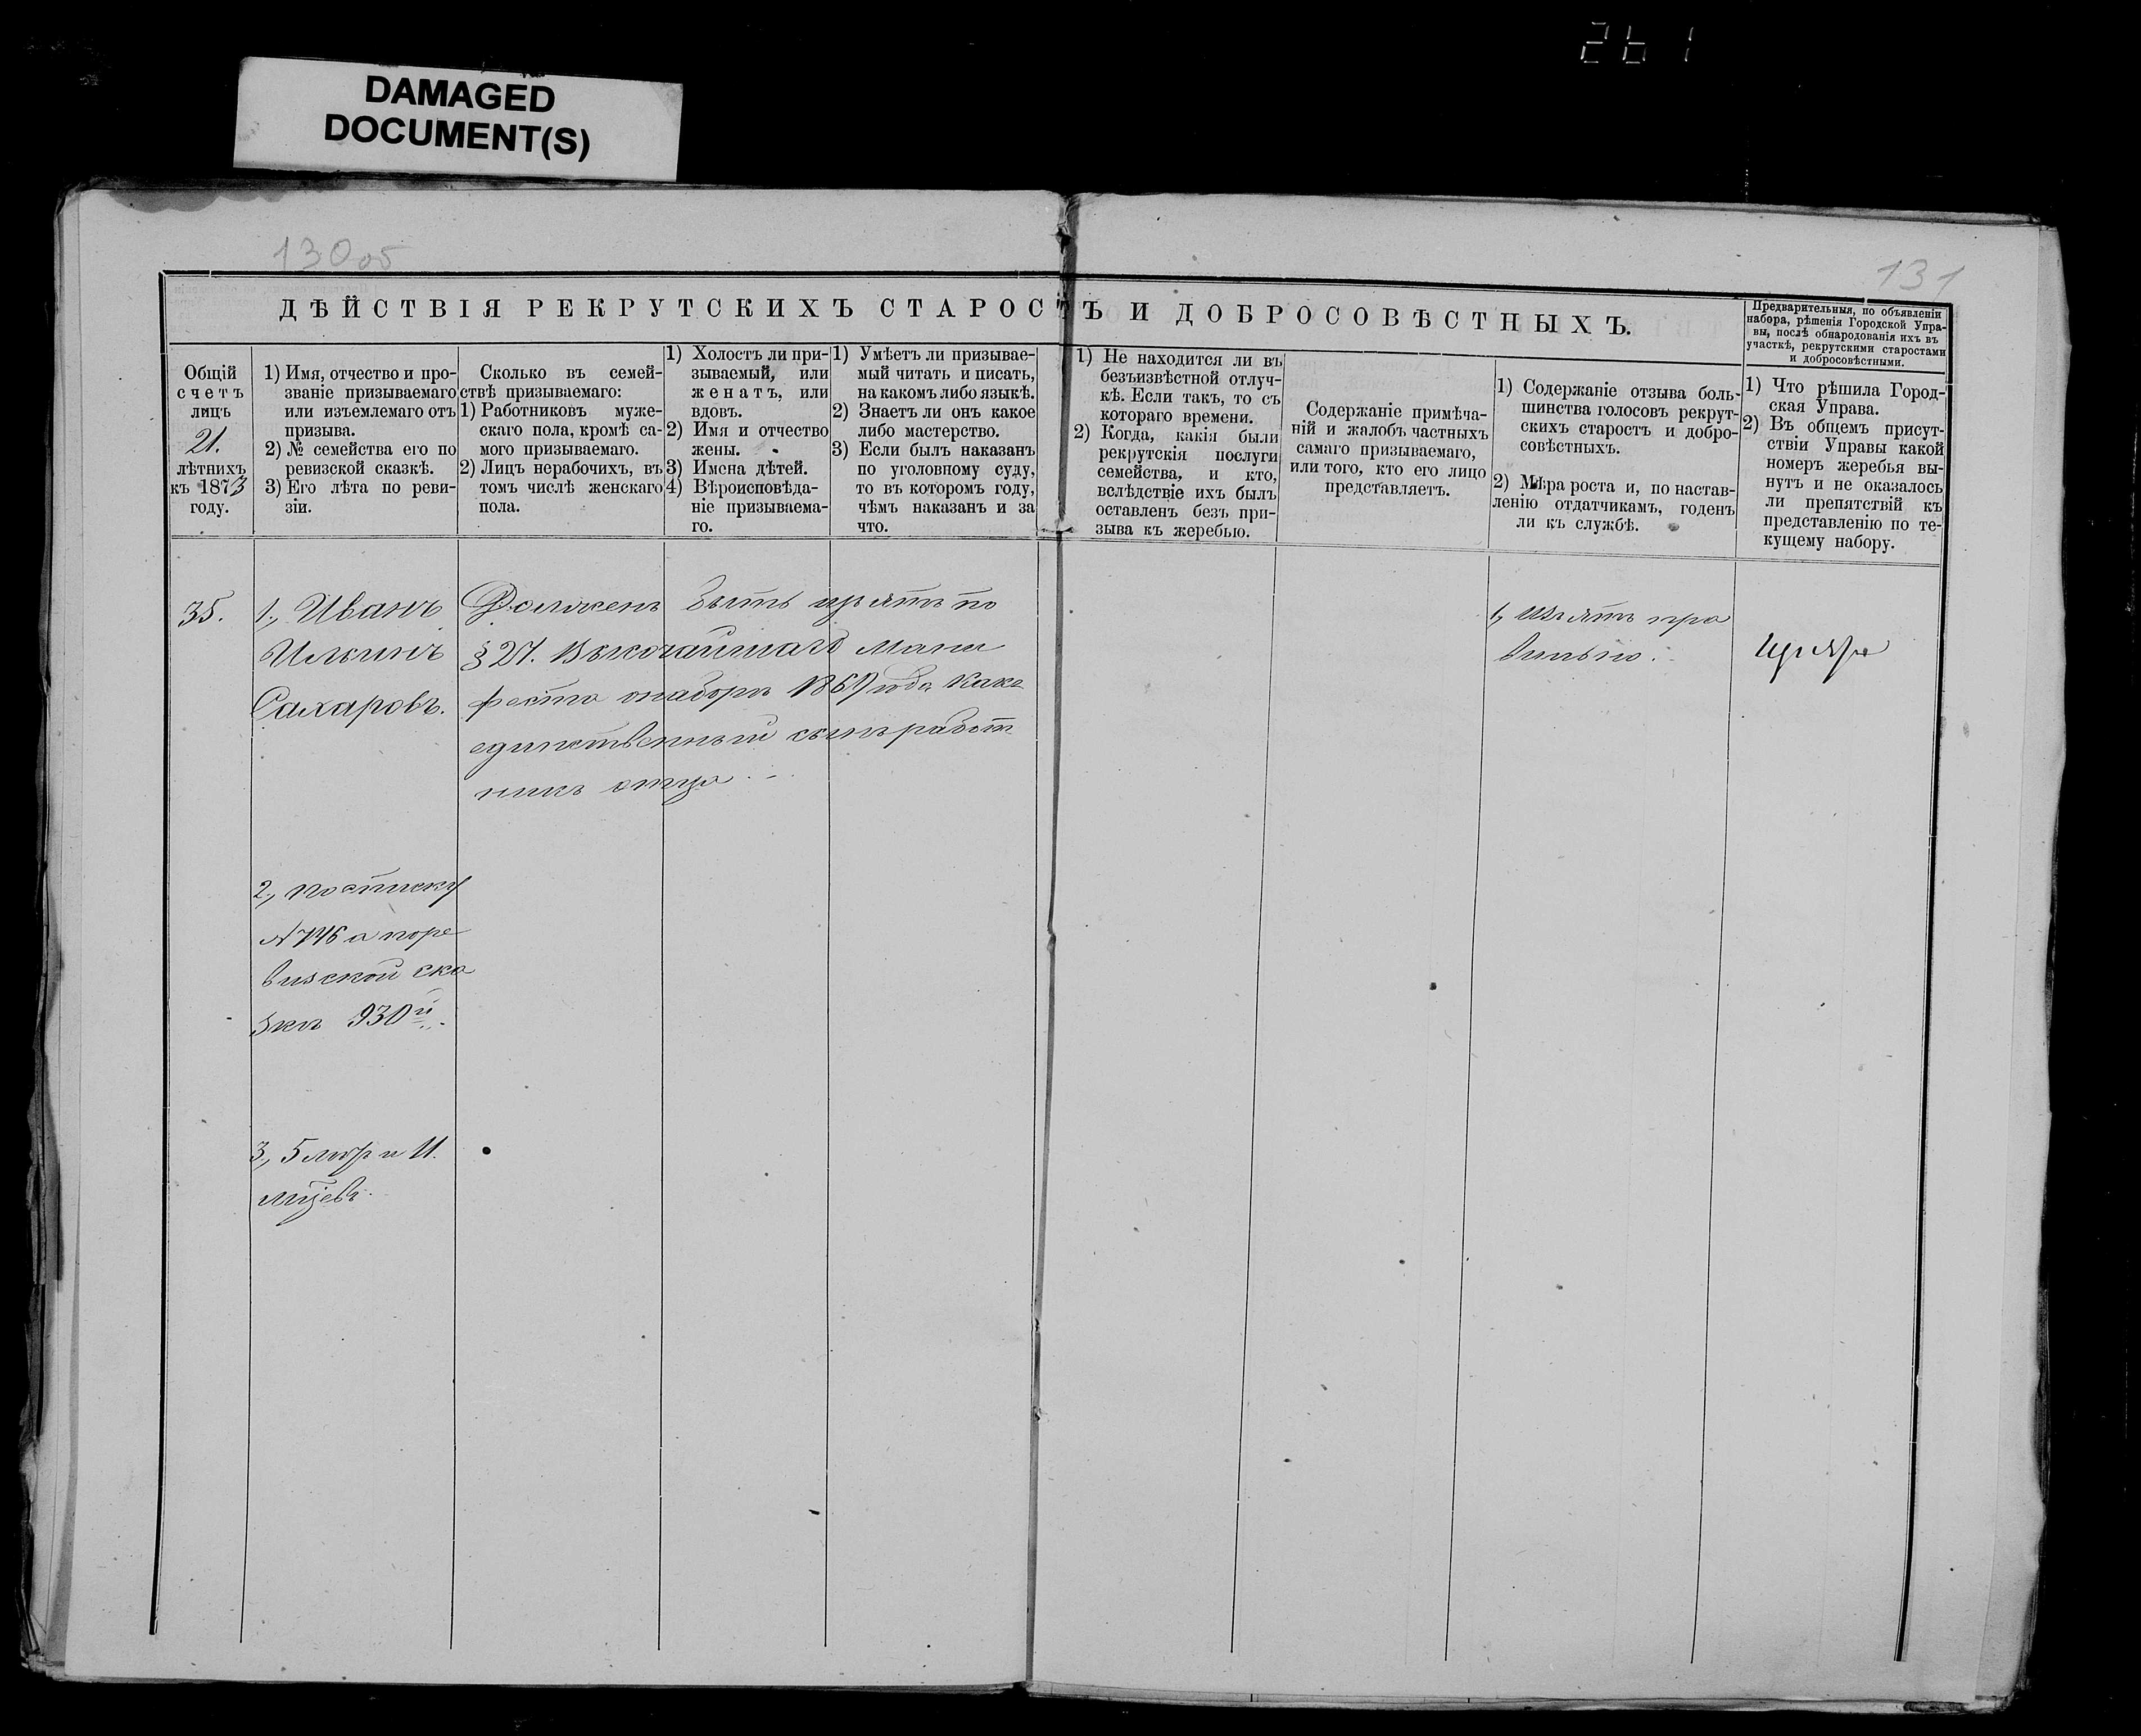 261
DAMAGED
DOCUMENT(S)
130об
131
ДѢЙСТВІЯ РЕКРУТСКИХЪ СТАРОСТЪ И ДОБРОСОВѢСТНЫХЪ.
Предварительныя, по объявленіи
набора, рѣшенія Городской Упра-
вы, послѣ обнародованія ихъ въ
участкѣ, рекрутскими старостами
и добросовѣстными.
Общій
счетъ
лицъ
21.
лѣтнихъ
къ 1873
году.
1) Имя, отчество и про-
званіе призываемаго
или изъемлемаго отъ
призыва.
2) № семейства его по
ревизской сказкѣ.
3) Его лѣта по реви-
зіи.
Сколько въ семей-
ствѣ призываемаго:
1) Работниковъ муже-
скаго пола, кромѣ са-
мого призываемаго.
2) Лицъ нерабочихъ, въ
томъ числѣ женскаго
пола.
1) Холостъ ли при-
зываемый, или
женатъ, или
вдовъ.
2) Имя и отчество
жены.
3) Имена дѣтей.
4) Вѣроисповѣда-
ніе призываема-
го.
1) Умѣетъ ли призывае-
мый читать и писать,
на какомъ либо языкѣ.
2) Знаетъ ли онъ какое
либо мастерство.
3) Если былъ наказанъ
по уголовному суду,
то въ которомъ году,
чѣмъ наказанъ и за
что.
1) Не находится ли въ
безъизвѣстной отлуч-
кѣ. Если такъ, то съ
котораго времени.
2) Когда, какія были
рекрутскія послуги
семейства, и кто,
вслѣдствіе ихъ былъ
оставленъ безъ при-
зыва къ жеребью.
Содержаніе примѣча-
ній и жалобъ частныхъ
самаго призываемаго,
или того, кто его лицо
представляетъ.
1) Содержаніе отзыва боль-
шинства голосовъ рекрут-
скихъ старостъ и добро-
совѣстныхъ.
2) Мѣра роста и, по настав-
ленію отдатчикамъ, годенъ
ли къ службѣ.
1) Что рѣшила Город-
ская Управа.
2) Въ общемъ присут-
ствіи Управы какой
номеръ жеребья вы-
нутъ и не оказалось
ли препятствій къ
представленію по те-
кущему набору.
35.
1., Иванъ
Ильинъ
Сахаровъ.
Долженъ быть изъятъ по
§ 27. Высочайшаго Мани
феста о наборѣ 1869 года какъ
единственный сынъ работ
никъ отца
1, Изъятъ пра
вильно.
2., по списку
№ 746 а по ре
визской ска
зкѣ 930й
3., 5 лѣтъ и 11.
мѣсяцевъ.